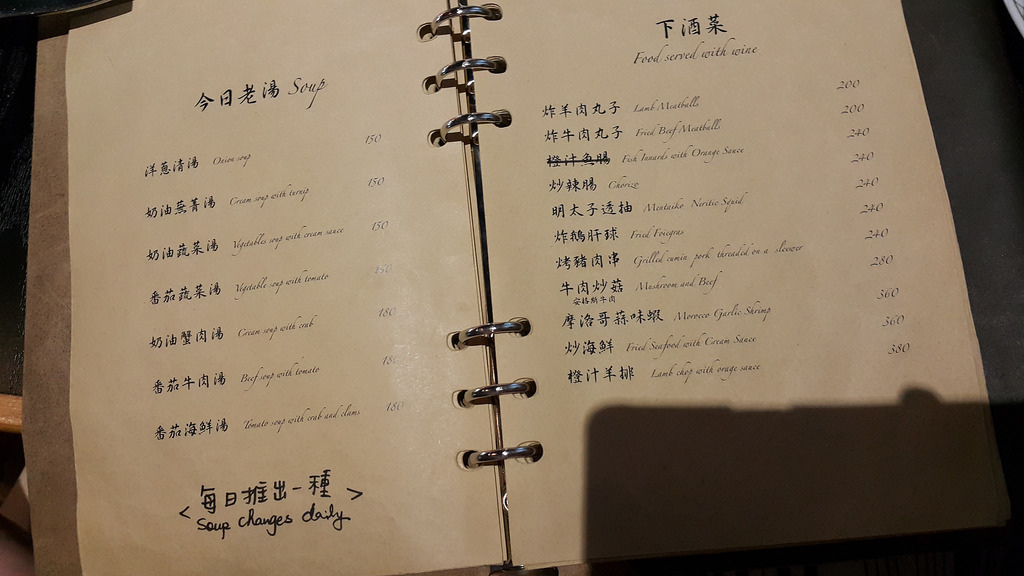 今日老湯 Soup
洋蔥清湯 Onion soup 150
奶油蕪菁湯 Cream soup with turnip 150
奶油蔬菜湯 Vegetables soup with cream sauce 150
番茄蔬菜湯 Vegetable soup with tomato 150
奶油蟹肉湯 Cream soup with crab 180
番茄牛肉湯 Beef soup with tomato 180
番茄海鮮湯 Tomato soup with crab and clams 180
<每日推出一種>
Soup changes daily
下酒菜
Food served with wine
炸羊肉丸子 Lamb Meatballs 200
炸牛肉丸子 Fried Beef Meatballs 200
橙汁魚腸 Fish Innards with Orange Sauce 240
炒辣腸 Chorizo 240
明太子透抽 Mentaiko Neritic Squid 240
炸鵝肝球 Fried Foiegras 240
烤豬肉串 Grilled cumin pork threaded on a sleewer 240
牛肉炒菇 Mushroom and Beef 280
安格斯牛肉
摩洛哥蒜味蝦 Morocco Garlic Shrimp 360
炒海鮮 Fried Seafood with Cream Sauce 360
橙汁羊排 Lamb chop with orage sauce 380